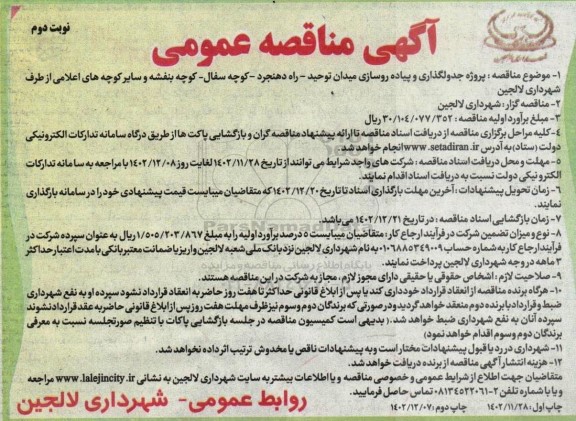 نوبت دوم
آگهی مناقصه عمومی
۱- موضوع مناقصه : پروژه جدولگذاری و پیاده روسازی میدان توحید - راه دهنجرد - کوچه سفال- کوچه بنفشه و سایر کوچه های اعلامی از طرف
شهرداری لالجین
۲- مناقصه گزار: شهرداری لالجین
۳- مبلغ برآورد اولیه مناقصه : ۳۰/۱۰۴/۰۷۷/۳۵۲ ریال
۴- کلیه مراحل برگزاری مناقصه از دریافت اسناد مناقصه تا ارائه پیشنهاد مناقصه گران و بازگشایی پاکت ها از طریق درگاه سامانه تدارکات الکترونیکی
دولت (ستاد) به آدرس www.setadiran.ir انجام خواهد شد.
۵- مهلت و محل دریافت اسناد مناقصه : شرکت های واجد شرایط می توانند از تاریخ ۱۴۰۲/۱۱/۲۸ لغایت روز ۱۴۰۲/۱۲/۰۸ با مراجعه به سامانه تدارکات
الکترونیکی دولت نسبت به دریافت اسناد اقدام نمایند.
۶- زمان تحویل پیشنهادات : آخرین مهلت بارگذاری اسناد تا تاریخ ۱۴۰۲/۱۲/۲۰ که متقاضیان میبایست قیمت پیشنهادی خود را در سامانه بارگذاری
نمایند.
۷- زمان بازگشایی اسناد مناقصه : در تاریخ ۱۴۰۲/۱۲/۲۱ می باشد.
۸- نوع و میزان تضمین شرکت در فرآیند ارجاع کار : متقاضیان میبایست ۵ درصد برآورد اولیه را به مبلغ ۱/۵۰۵/۲۰۳/۸۶۷ ریال به عنوان سپرده شرکت در
فرآیند ارجاع کار به شماره حساب ۰۱۰۶۸۸۵۳۴۹۰۰۹ به نام شهرداری لالجین نزد بانک ملی شعبه لالجین واریز یا ضمانت معتبر بانکی با مدت اعتبار حداکثر
۳ ماهه در وجه شهرداری لالجین پرداخت نمایند.
۹- صلاحیت لازم : اشخاص حقوقی یا حقیقی دارای مجوز لازم، مجاز به شرکت در این مناقصه هستند.
۱۰- هرگاه برنده مناقصه از انعقاد قرارداد خودداری کند یا پس از ابلاغ قانونی حداکثر تا هفت روز حاضر به انعقاد قرارداد نشود سپرده او به نفع شهرداری
ضبط و قرارداد با برنده دوم منعقد خواهد گردید و در صورتی که برندگان دوم و سوم نیز ظرف مهلت هفت روز پس از ابلاغ قانونی حاضر به عقد قرارداد نشوند
سپرده آنان به نفع شهرداری ضبط خواهد شد.( بدیهی است کمیسیون مناقصه در جلسه بازگشایی پاکات با تنظیم صورتجلسه نسبت به معرفی
برندگان دوم و سوم اقدام خواهد نمود)
۱۱- شهرداری در رد یا قبول پیشنهادات مختار است و به پیشنهادات ناقص یا مخدوش ترتیب اثر داده نخواهد شد.
۱۲- هزینه انتشار آگهی مناقصه از برنده دریافت خواهد شد.
متقاضیان جهت اطلاع از شرایط عمومی و خصوصی مناقصه و یا اطلاعات بیشتر به سایت شهرداری لالجین به نشانی www.lalejincity.ir مراجعه
و یا با شماره تلفن ۲-۰۸۱۳۴۵۲۲۰۶۱ تماس حاصل فرمایید.
چاپ اول: ۱۴۰۲/۱۱/۲۸ چاپ دوم: ۱۴۰۲/۱۲/۰۷
روابط عمومی- شهرداری لالجین